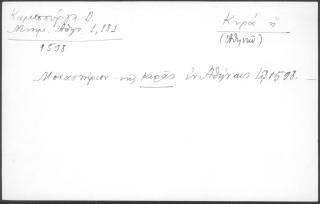 Καμπούρογλ. Δ.
Μνημ. Ἀθην. 1, 181
1598
Κυρά ἡ
(Ἀθηνῶν)
Μοναστήριον τῆς Κυρᾶς ἐν Ἀθήναις 1598.